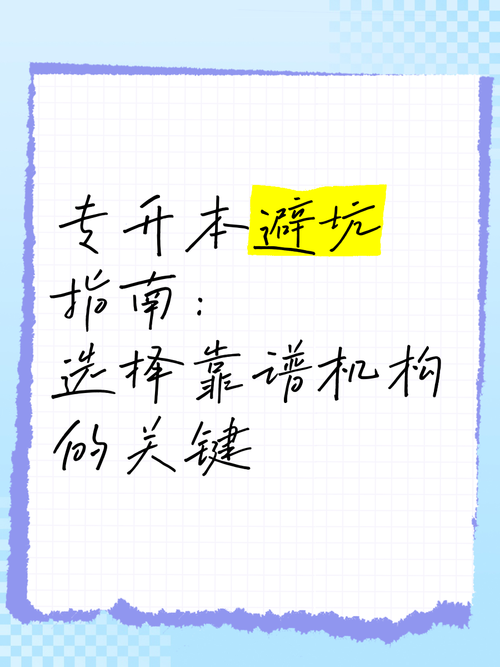 专升本避坑
指南：
选择靠谱机构
的关键